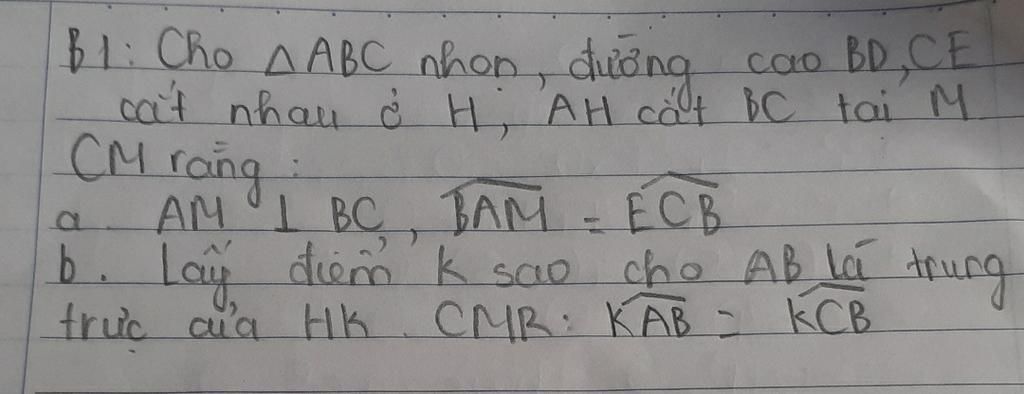 B1: Cho △ABC nhọn, đường cao BD, CE
cắt nhau ở H, AH cắt BC tại M
CM rằng:
a. AM ⊥ BC, \widehat{BAM} = \widehat{ECB}
b. Lấy điểm K sao cho AB là trung
trực của HK. CMR: \widehat{KAB} = \widehat{KCB}